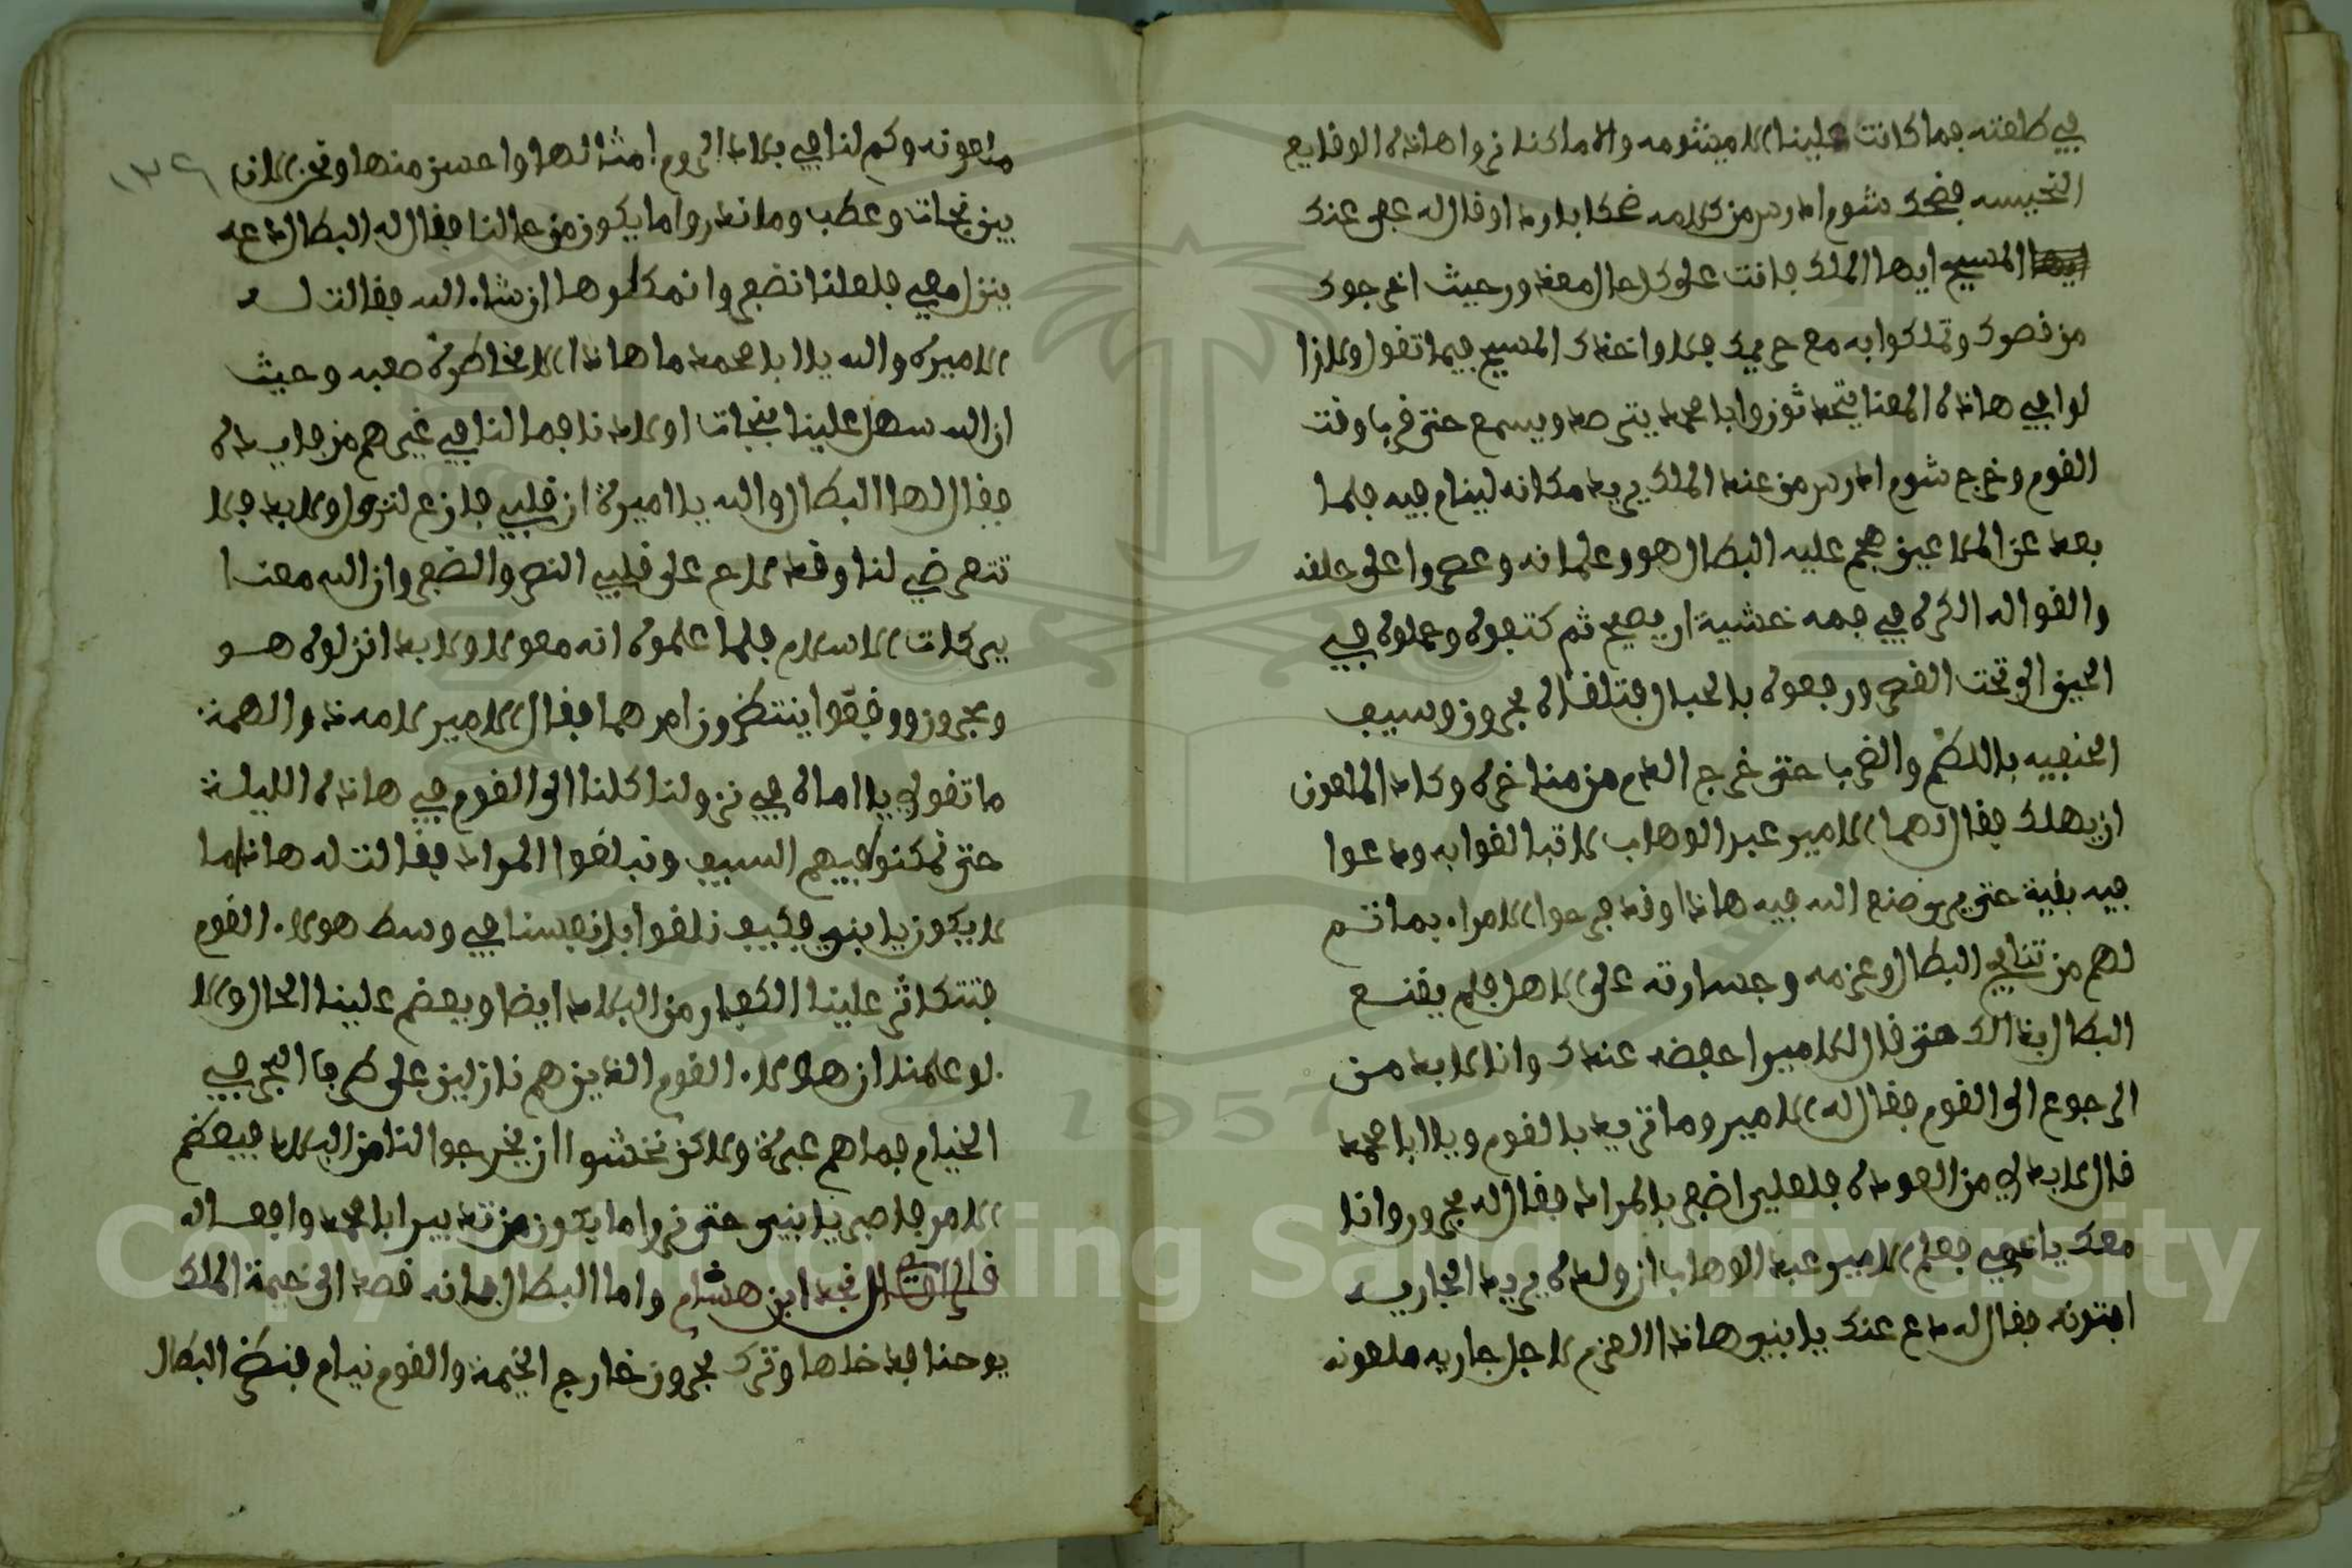 في طلعته فما كانت علينا الا ميشومه والا ما كنا نروا هاذه الوقايع
النحيسه فضحك شوم ادرس من كلامه ضحكا باردا وقال له عبر عنك
المسيح ايها الملك فانت على كل حال معذور حيث اخرجوك
من قصرك وتملكوا به مع حريمك فلا واخذك المسيح فيما تقول ولا زا
لوا في هاذه المعنا يتحدثون وابا محمد يترصد ويسمع حتى قرب وقت
النوم وخرج شوم ادرس من عند الملك يريد مكانه لينام فيه فلما
بعد عن الملاعين هجم عليه البطال هو وغلمانه وعصروا على حلقه
والقوا له الكره في فمه خشية ان يصيح ثم كتفوه وحملوه في
الحين الى تحت القصر ورفعوه بالحبال فتلقاه بحرون وسيف
الحنفيه باللطم والضرب حتى خرج الدم من مناخره وكاد الملعون
ان يهلك فقال لهما الامير عبد الوهاب لا تبالغوا به ودعوا
فيه بقية حتى يرى صنع الله فيه هاذا وقد فرحوا الامراء بما تم
لهم من تنافي البطال وعزمه وجسارته على الاهوال فلم يقنع
البطال بذالك حتى قال للامير احفضه عندك وانا لابد من
الرجوع الى القوم فقال له الامير وما تريد بالقوم ويا ابا محمد
قال لابد لي من العوده فلعلي اضفر بالمراد فقال له بحرون وانا
معك يا عمي فعلم الامير عبد الوهاب ان ولده يريد الجاريه
افتونه فقال له دع عنك يا بني هاذا العزم لاجل جاريه ملعونه
١٣٩
ملعونه وكم لنا في بلاد الروم امثالها واحسن منها ونحن الان
بين نجات وعطب وما ندروا ما يكون من حالنا فقال له البطال دعه
ينزل معي فلعلنا نضفروا نمكلوها ان شاء الله فقالت له
الاميره والله يا ابا محمد ما هاذا الا مخاطرة صعبه وحيث
ان الله سهل علينا بنجات اولادنا فما لنا في غيرهم من فايده
فقال لها البطال والله يا اميرة ان قلبي فازع لنزول ولابد فلا
تتعرضي لنا وقد لاح على قلبي النصر والضفر وان الله معنا
ببركات الاسلام فلما علموه انه معول ولابد انزلوه هو
وبحرون ووقفوا ينتظرون امرهما فقال الامير لامه ذو الهمة
ما تقولي يا اماه في نزولنا كلنا الى القوم في هاذه الليلة
حتى نمكنوا فيهم السيف ونبلغوا المراد فقالت له هاذا ما
لا يكون يا بني فكيف نلقوا بانفسنا في وسط هولاء القوم
فتتكاثر علينا الكفار من البلاد ايضا ويعضم علينا الحال ولا
لو علمنا ان هولاء القوم الذين هم نازلين على طرف البحر في
الخيام فما هم عبرة ولاكن نخشوا ان يخرجوا لنا من البلاد فيعضم
الامر فاصبر يا بني حتى نروا ما يكون من تدبير ابا محمد وافعاله
قال الراوي نجد ابن هشام واما البطال فانه قصد الى خيمة الملك
يوحنا فدخلها وترك بحرون خارج الخيمة والقوم نيام فنظر البطال